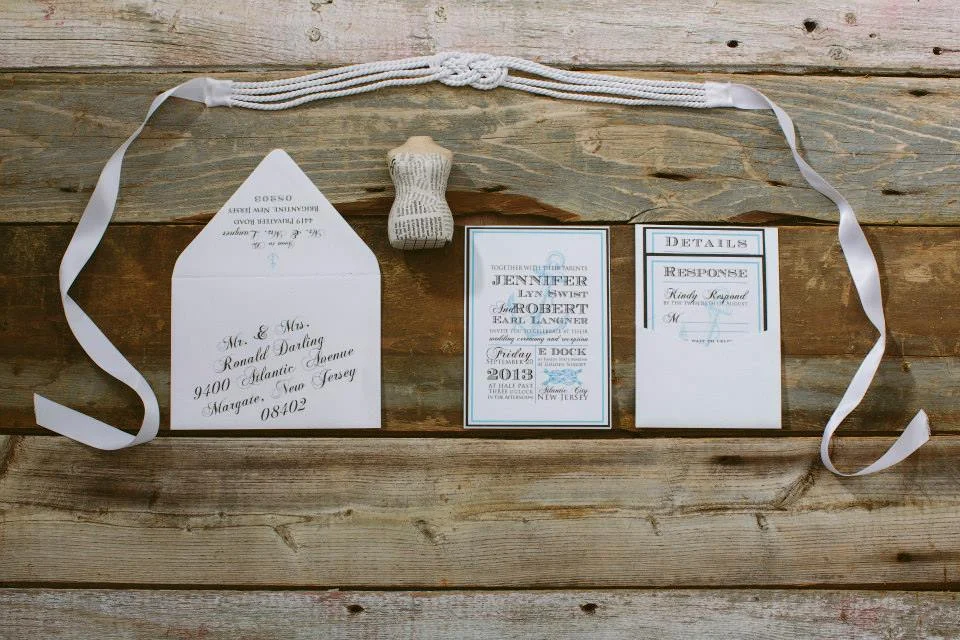 Mr. & Mrs. Langner
4419 Privateer Road
Brigantine, New Jersey
08203
Mr. & Mrs.
Ronald Darling
9400 Atlantic Avenue
Margate, New Jersey
08402
TOGETHER WITH THEIR PARENTS
JENNIFER
LYN SWIST
And ROBERT
EARL LANGNER
INVITE YOU TO CELEBRATE AT THEIR
wedding ceremony and reception
Friday
SEPTEMBER 20
2013
AT HALF PAST
THREE O'CLOCK
IN THE AFTERNOON
E DOCK
Atlantic City
NEW JERSEY
DETAILS
RESPONSE
Kindly Respond
BY THE TWENTIETH OF AUGUST
M